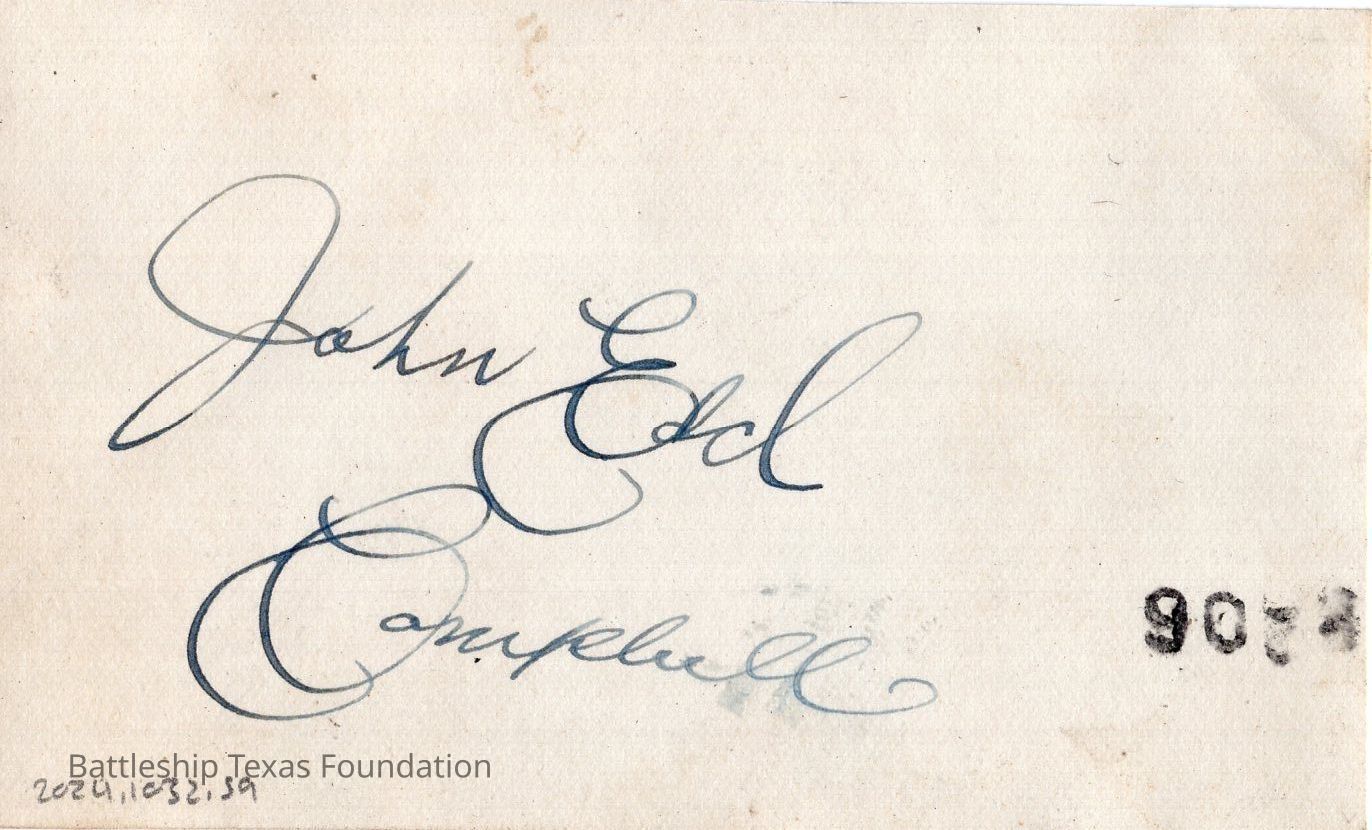 John Edd
Campbell
Battleship Texas Foundation
2024.1032.39